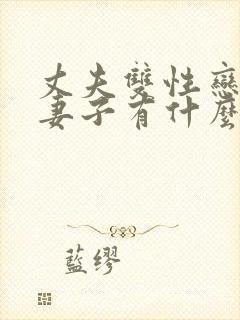 丈夫雙性戀
妻子有什麼
藍缪